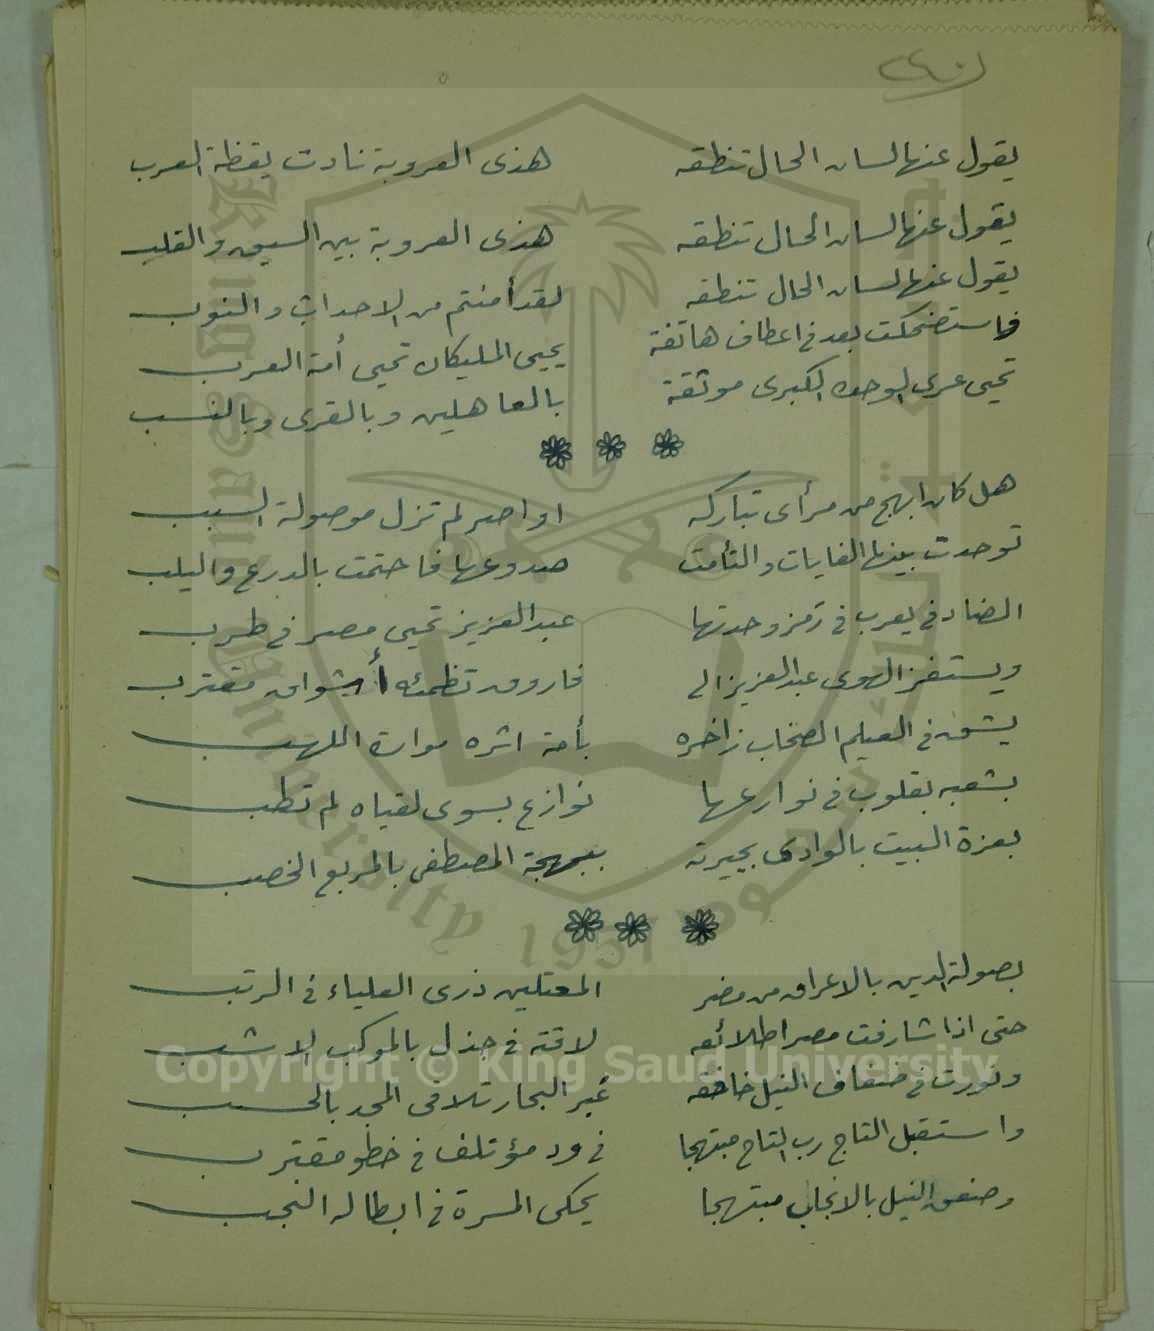 يقول عنها لسان الحال تنطقه هذى العروبة نادت يقظة العرب
يقول عنها لسان الحال تنطقه هذى العروبة بين السيف والقلب
يقول عنها لسان الحال تنطقه لقد أمنتم من الاحداث والنوب
فاستضحكت بعد فى اعطاف هاتفة يحيى المليكان تحيى أمة العرب
تحيى عرى الوحدة الكبرى موثقة بالعاهلين وبالقرى وبالنسب
هل كان ابهج من مرأى تباركه اواصر لم تزل موصولة السبب
توحدت بينها الغايات والتأمت صدوعها فاحتمت بالدرع واليلب
الضاد فى يعرب فى رمز وحدتها عبد العزيز تحيى مصر فى طرب
ويستفز الهوى عبد العزيز الى فاروق تظمئه أشواق مقترب
يشق فى العيلم الصخاب زاخره بأمة اثره موارة اللهب
بشعبه بقلوب فى نوازعها نوازع بسوى لقياه لم تطب
بعزة البيت بالوادى بجيرته ببهجة المصطفى بالمربع الخصب
بصولة الدين بالاعراق من مضر المعتلين ذرى العلياء فى الرتب
حتى اذا شارفت مصرا طلائعه لاقته فى جذل بالموكب الاشب
ودورت فى ضفاف النيل خافقه عبر البحار تلاقى المجد بالحسب
واستقبل التاج رب التاج مبتهجا فى ود مؤتلف فى خطو مقترب
وصفق النيل بالانجاب مبتهجا يحكى المسرة فى ابطاله النجب
King Saud University
1957
جامعة الملك سعود
Copyright © King Saud University